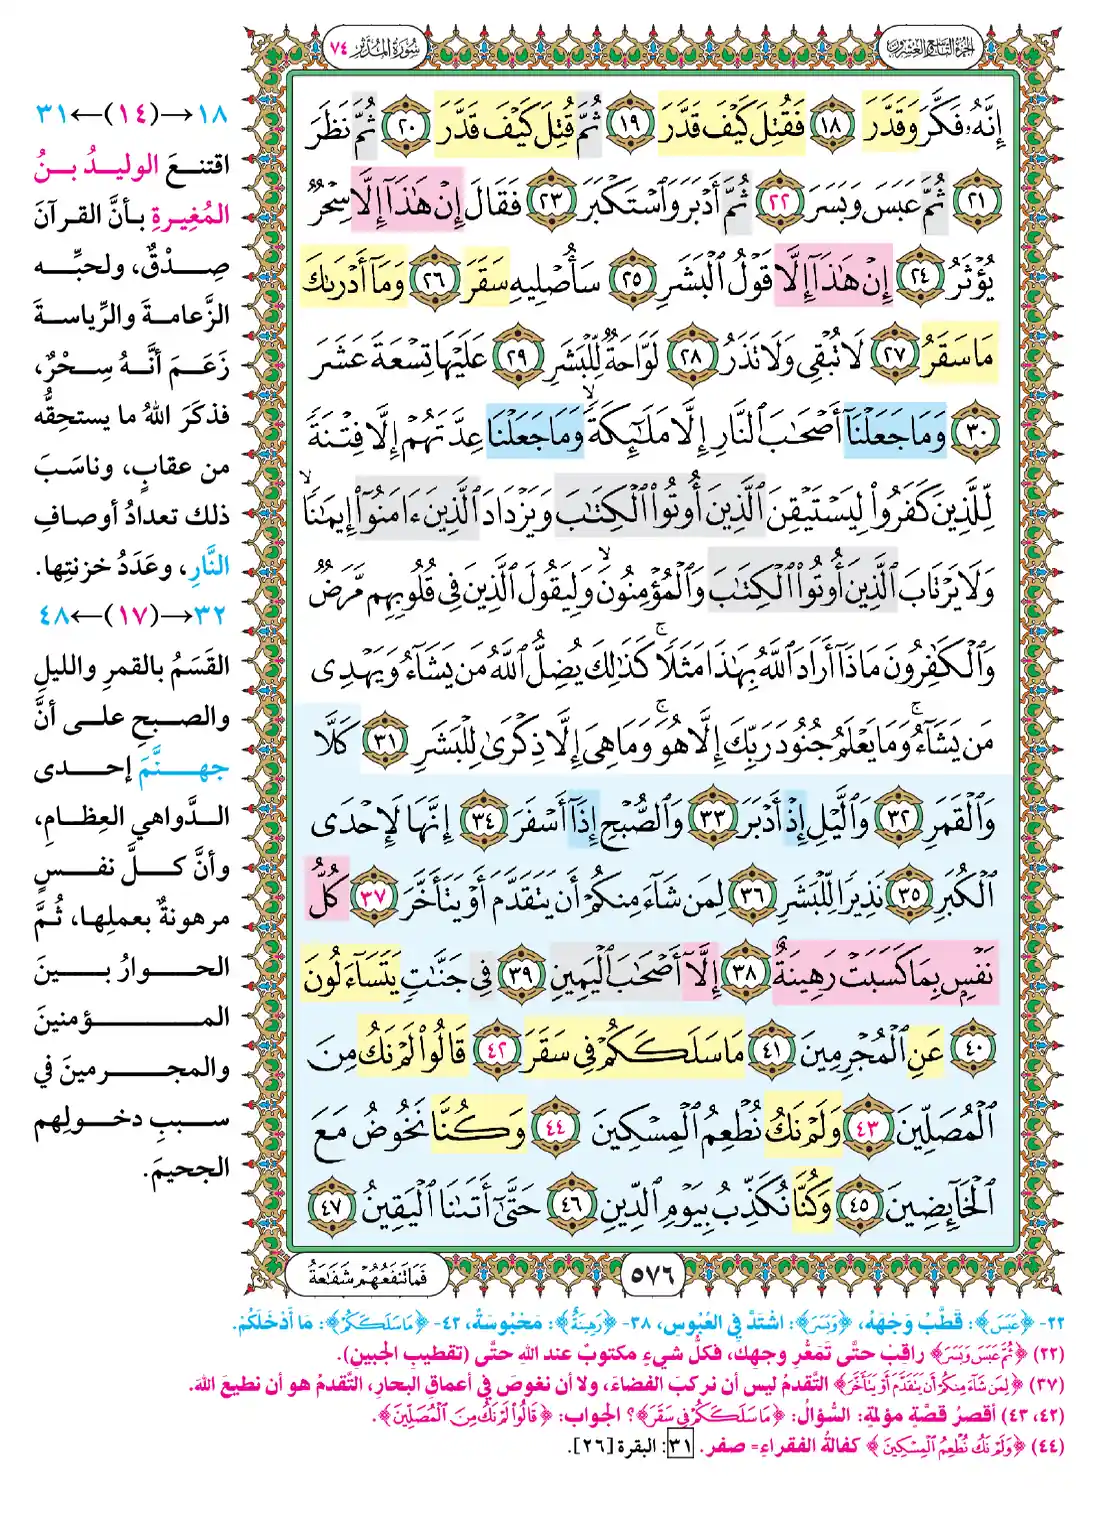 الجزء التاسع والعشرون
سُورَةُ المُدَّثِّر ٧٤
إِنَّهُۥ فَكَّرَ وَقَدَّرَ ١٨ فَقُتِلَ كَيۡفَ قَدَّرَ ١٩ ثُمَّ قُتِلَ كَيۡفَ قَدَّرَ ٢٠ ثُمَّ نَظَرَ
٢١ ثُمَّ عَبَسَ وَبَسَرَ ٢٢ ثُمَّ أَدۡبَرَ وَٱسۡتَكۡبَرَ ٢٣ فَقَالَ إِنۡ هَٰذَآ إِلَّا سِحۡرٞ
يُؤۡثَرُ ٢٤ إِنۡ هَٰذَآ إِلَّا قَوۡلُ ٱلۡبَشَرِ ٢٥ سَأُصۡلِيهِ سَقَرَ ٢٦ وَمَآ أَدۡرَىٰكَ
مَا سَقَرُ ٢٧ لَا تُبۡقِي وَلَا تَذَرُ ٢٨ لَوَّاحَةٞ لِّلۡبَشَرِ ٢٩ عَلَيۡهَا تِسۡعَةَ عَشَرَ
٣٠ وَمَا جَعَلۡنَآ أَصۡحَٰبَ ٱلنَّارِ إِلَّا مَلَٰٓئِكَةٗۙ وَمَا جَعَلۡنَا عِدَّتَهُمۡ إِلَّا فِتۡنَةٗ
لِّلَّذِينَ كَفَرُواْ لِيَسۡتَيۡقِنَ ٱلَّذِينَ أُوتُواْ ٱلۡكِتَٰبَ وَيَزۡدَادَ ٱلَّذِينَ ءَامَنُوٓاْ إِيمَٰنٗاۙ
وَلَا يَرۡتَابَ ٱلَّذِينَ أُوتُواْ ٱلۡكِتَٰبَ وَٱلۡمُؤۡمِنُونَۙ وَلِيَقُولَ ٱلَّذِينَ فِي قُلُوبِهِم مَّرَضٞ
وَٱلۡكَٰفِرُونَ مَاذَآ أَرَادَ ٱللَّهُ بِهَٰذَا مَثَلٗاۚ كَذَٰلِكَ يُضِلُّ ٱللَّهُ مَن يَشَآءُ وَيَهۡدِي
مَن يَشَآءُۚ وَمَا يَعۡلَمُ جُنُودَ رَبِّكَ إِلَّا هُوَۚ وَمَا هِيَ إِلَّا ذِكۡرَىٰ لِلۡبَشَرِ ٣١ كَلَّا
وَٱلۡقَمَرِ ٣٢ وَٱلَّيۡلِ إِذۡ أَدۡبَرَ ٣٣ وَٱلصُّبۡحِ إِذَآ أَسۡفَرَ ٣٤ إِنَّهَا لَإِحۡدَى
ٱلۡكُبَرِ ٣٥ نَذِيرٗا لِّلۡبَشَرِ ٣٦ لِمَن شَآءَ مِنكُمۡ أَن يَتَقَدَّمَ أَوۡ يَتَأَخَّرَ ٣٧ كُلُّ
نَفۡسِۭ بِمَا كَسَبَتۡ رَهِينَةٌ ٣٨ إِلَّآ أَصۡحَٰبَ ٱلۡيَمِينِ ٣٩ فِي جَنَّٰتٖ يَتَسَآءَلُونَ
٤٠ عَنِ ٱلۡمُجۡرِمِينَ ٤١ مَا سَلَكَكُمۡ فِي سَقَرَ ٤٢ قَالُواْ لَمۡ نَكُ مِنَ
ٱلۡمُصَلِّينَ ٤٣ وَلَمۡ نَكُ نُطۡعِمُ ٱلۡمِسۡكِينَ ٤٤ وَكُنَّا نَخُوضُ مَعَ
ٱلۡخَآئِضِينَ ٤٥ وَكُنَّا نُكَذِّبُ بِيَوۡمِ ٱلدِّينِ ٤٦ حَتَّىٰٓ أَتَىٰنَا ٱلۡيَقِينُ ٤٧
٥٧٦
فَمَا تَنفَعُهُمۡ شَفَٰعَةُ
١٨→(١٤)←٣١
اقتنعَ الوليدُ بنُ
المُغِيرةِ بأنَّ القرآنَ
صِدْقٌ، ولحبِّه
الزَّعامةَ والرِّياسةَ
زَعَمَ أنَّهُ سِحْرٌ،
فذكَرَ اللهُ ما يستحِقُّه
من عقابٍ، وناسَبَ
ذلك تعدادُ أوصافِ
النَّارِ، وعَدَدُ خزنتِها.
٣٢→(١٧)←٤٨
القَسَمُ بالقمرِ والليلِ
والصبحِ على أنَّ
جهنَّمَ إحدى
الدَّواهي العِظامِ،
وأنَّ كلَّ نفسٍ
مرهونةٌ بعملِها، ثُمَّ
الحوارُ بينَ
المؤمنينَ
والمجرمينَ في
سببِ دخولِهم
الجحيمَ.
٢٢- ﴿عَبَسَ﴾: قَطَّبَ وَجْهَهُ، ﴿وَبَسَرَ﴾: اشْتَدَّ فِي العُبُوسِ، ٣٨- ﴿رَهِينَةٌ﴾: مَحْبُوسَةٌ، ٤٢- ﴿مَا سَلَكَكُمۡ﴾: مَا أَدْخَلَكُمْ.
(٢٢) ﴿ثُمَّ عَبَسَ وَبَسَرَ﴾ راقِبْ حتَّى تَمَعُّرِ وجهِك، فكلُّ شيءٍ مكتوبٌ عند اللهِ حتَّى (تقطيبِ الجبينِ).
(٣٧) ﴿لِمَن شَآءَ مِنكُمۡ أَن يَتَقَدَّمَ أَوۡ يَتَأَخَّرَ﴾ التَّقدمُ ليس أن نركبَ الفضاءَ، ولا أن نغوصَ في أعماقِ البحارِ، التَّقدمُ هو أن نطيعَ اللهَ.
(٤٢، ٤٣) أقصرُ قصَّةٍ مؤلمةٍ: السُّؤالُ: ﴿مَا سَلَكَكُمۡ فِي سَقَرَ﴾؟ الجوابُ: ﴿قَالُواْ لَمۡ نَكُ مِنَ ٱلۡمُصَلِّينَ﴾.
(٤٤) ﴿وَلَمۡ نَكُ نُطۡعِمُ ٱلۡمِسۡكِينَ﴾ كفالةُ الفقراءِ= صفر. ٣١: البقرة [٢٦].